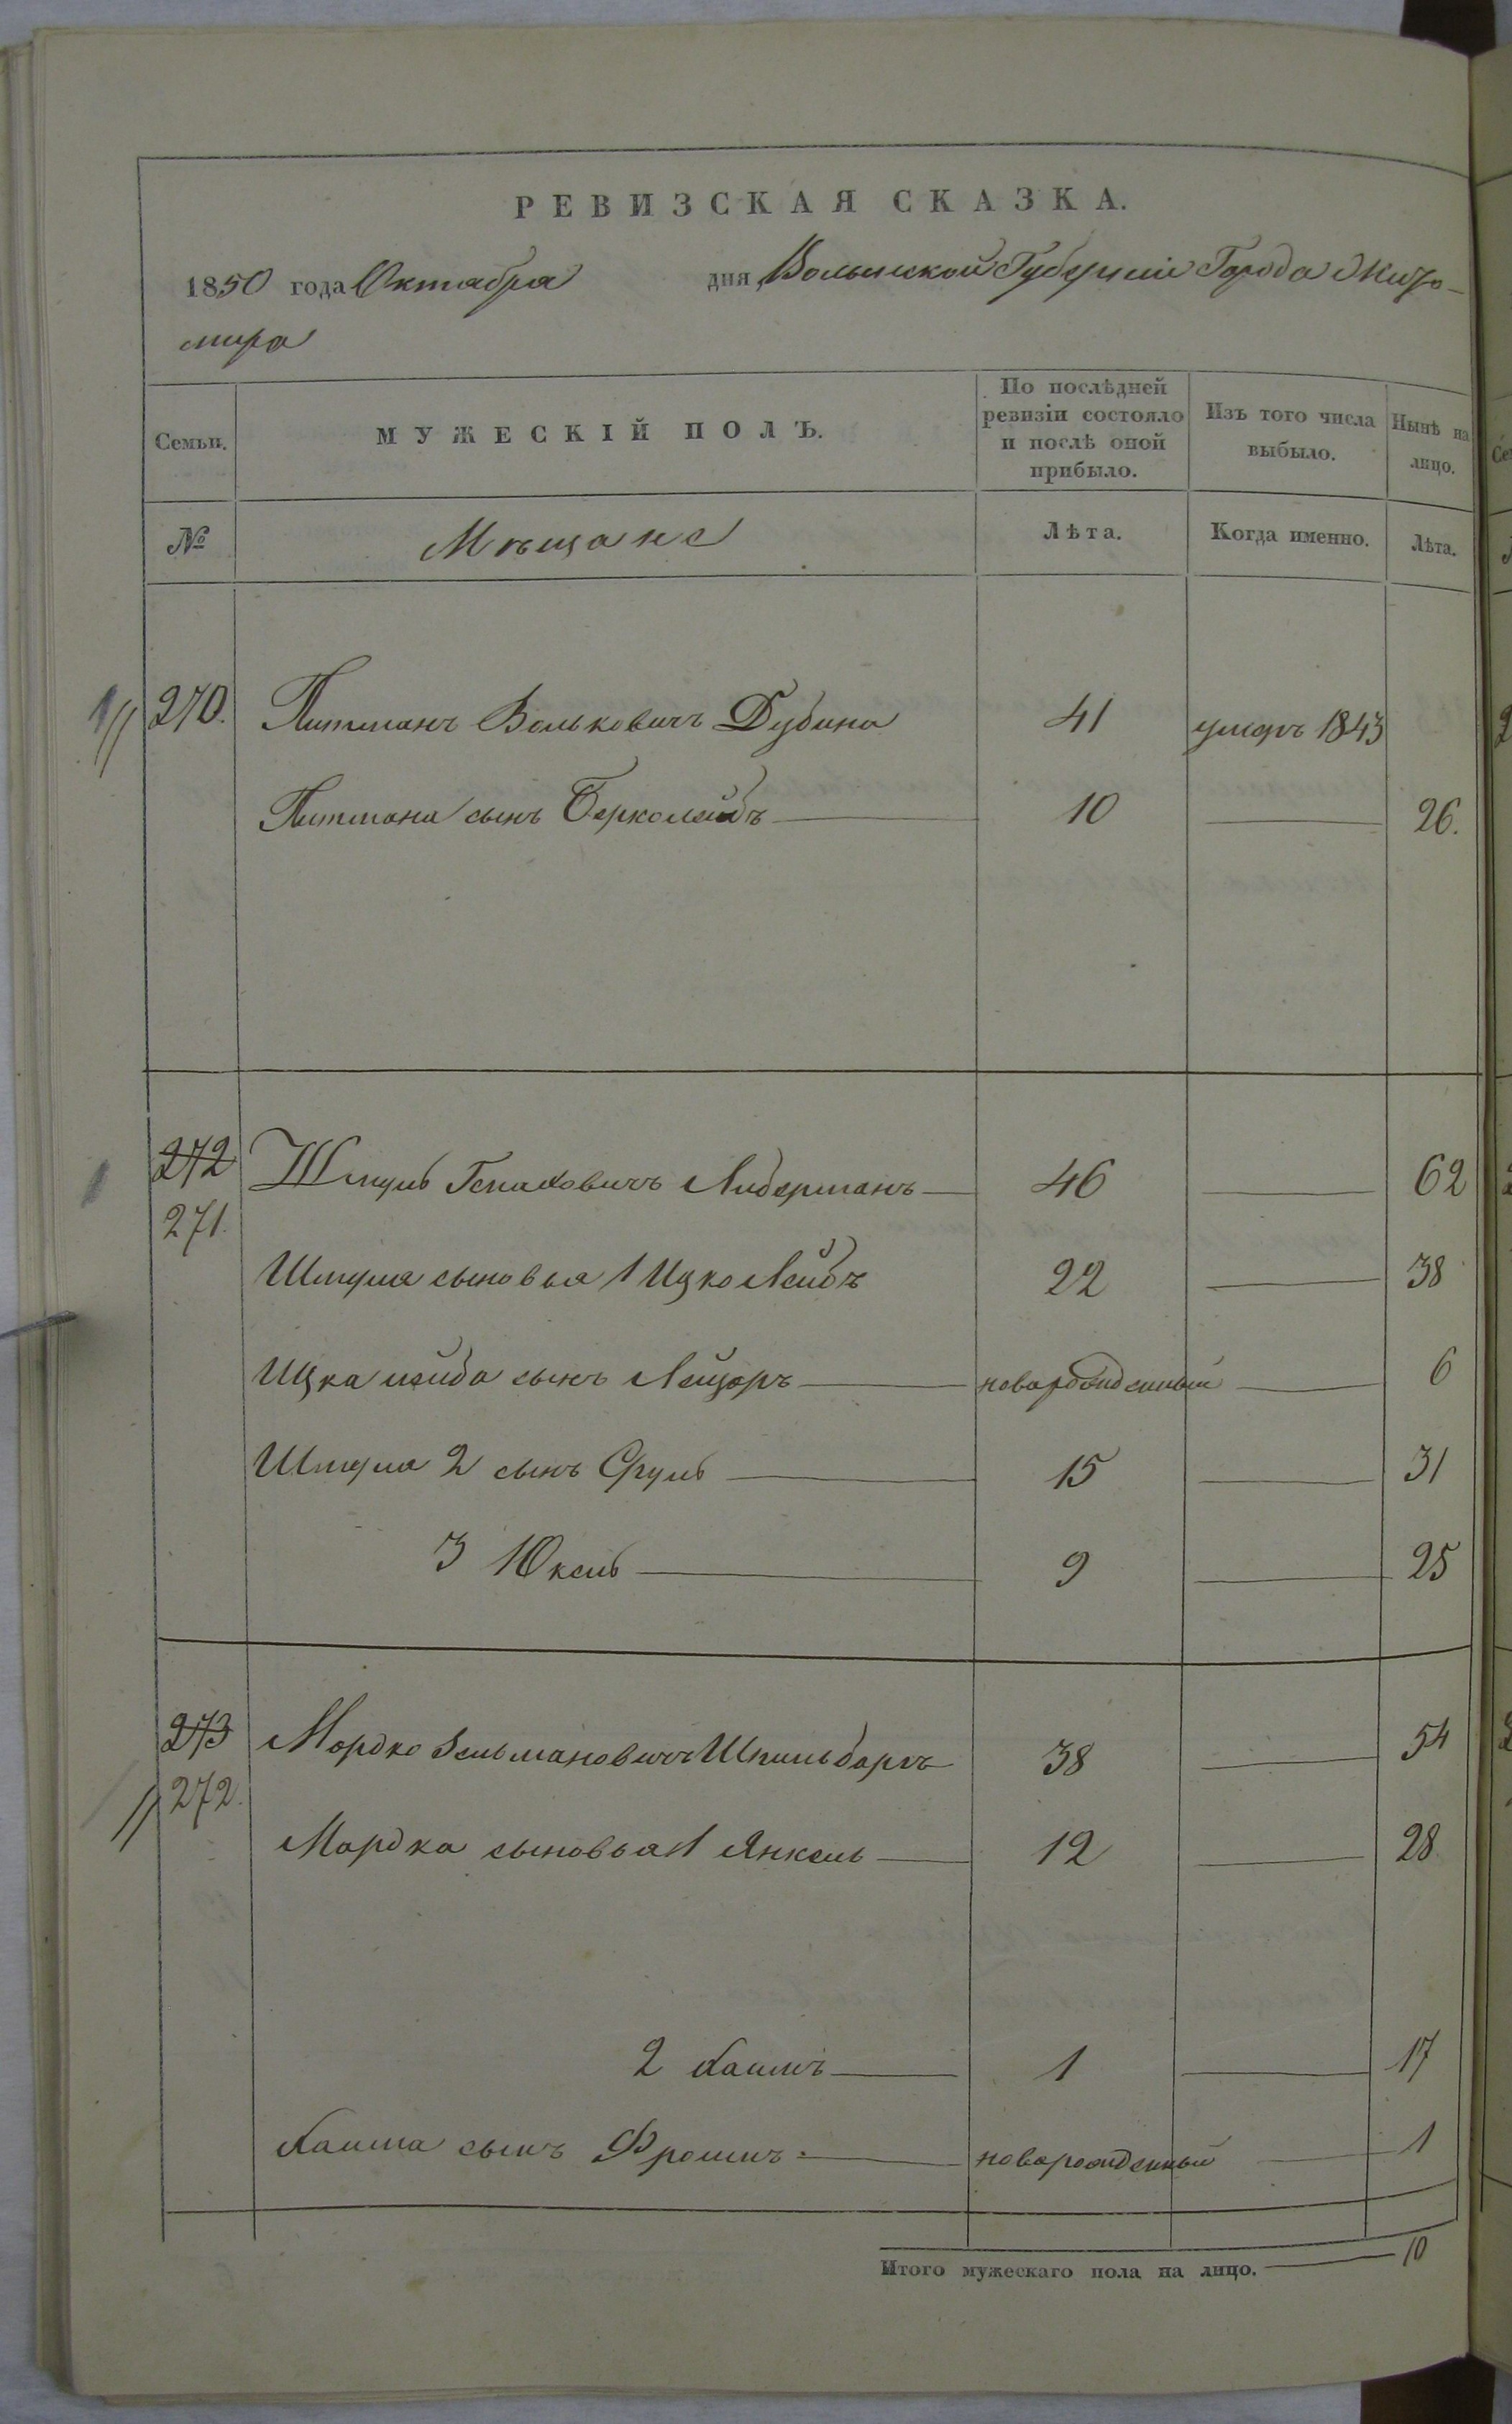 РЕВИЗСКАЯ СКАЗКА.
1850 года Октября дня Волынской Губерніи Города Жито-
мира
Семьи. МУЖЕСКІЙ ПОЛЪ. По послѣдней ревизіи состояло и послѣ оной прибыло. Изъ того числа выбыло. Нынѣ на лицо.
№ Мѣщане Лѣта. Когда именно. Лѣта.
270. Питманъ Вольковичъ Дубина 41 умеръ 1843
Питмана сынъ Берколейбъ 10 26.
272 Шмуль Генаховичъ Либерманъ 46 62
271.
Шмуля сыновья 1 Ицко Лейбъ 22 38
Ицка лейба сынъ Лейзоръ новорожденный 6
Шмуля 2 сынъ Сруль 15 31
3 Юкель 9 25
273 Мордко Зельмановичъ Шпильбергъ 38 54
272.
Мордка сыновья 1 Янкель 12 28
2 Хаимъ 1 17
Хаима сынъ Фроимъ новорожденный 1
Итого мужескаго пола на лицо. 10